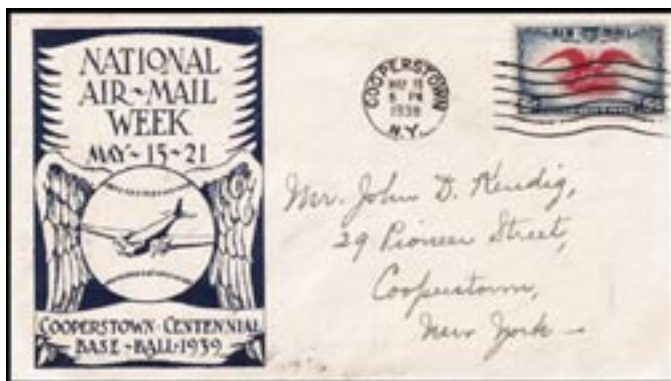 NATIONAL
AIR-MAIL
WEEK
MAY-15-21
COOPERSTOWN-CENTENNIAL
BASE-BALL-1939
COOPERSTOWN
MAY
5 PM
1938
N.Y.
AIR MAIL
Mr. John D. Kendig,
29 Pioneer Street,
Cooperstown,
New York